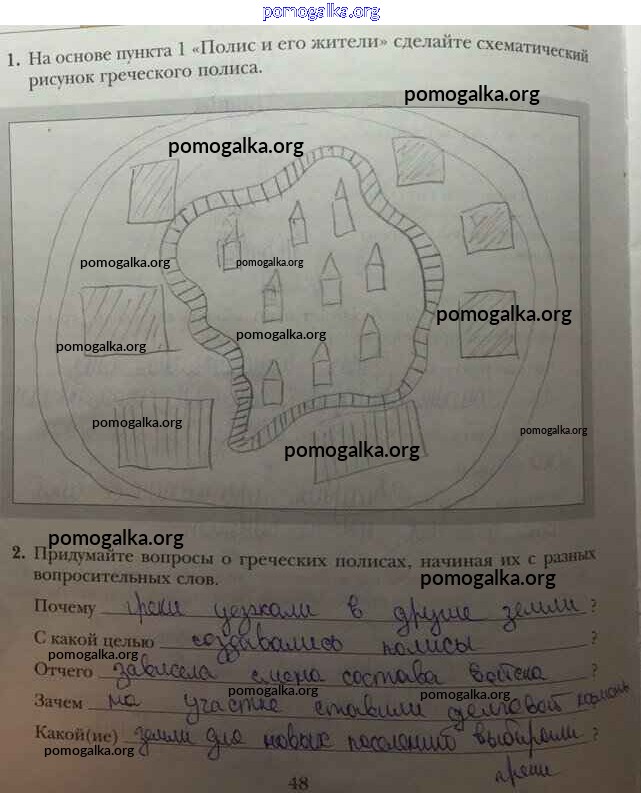 pomogalka.org
1. На основе пункта 1 «Полис и его жители» сделайте схематический
рисунок греческого полиса.
pomogalka.org
pomogalka.org
pomogalka.org
pomogalka.org
pomogalka.org
pomogalka.org
pomogalka.org
pomogalka.org
pomogalka.org
pomogalka.org
pomogalka.org
2. Придумайте вопросы о греческих полисах, начиная их с разных
вопросительных слов.
pomogalka.org
Почему греки уезжали в другие земли ?
С какой целью создавались полисы ?
pomogalka.org
Отчего зависела смена состава войска ?
pomogalka.org
pomogalka.org
Зачем на участке ставили долговой камень
Какой(ие) земли для новых поселений выбирали ?
pomogalka.org
греки
48